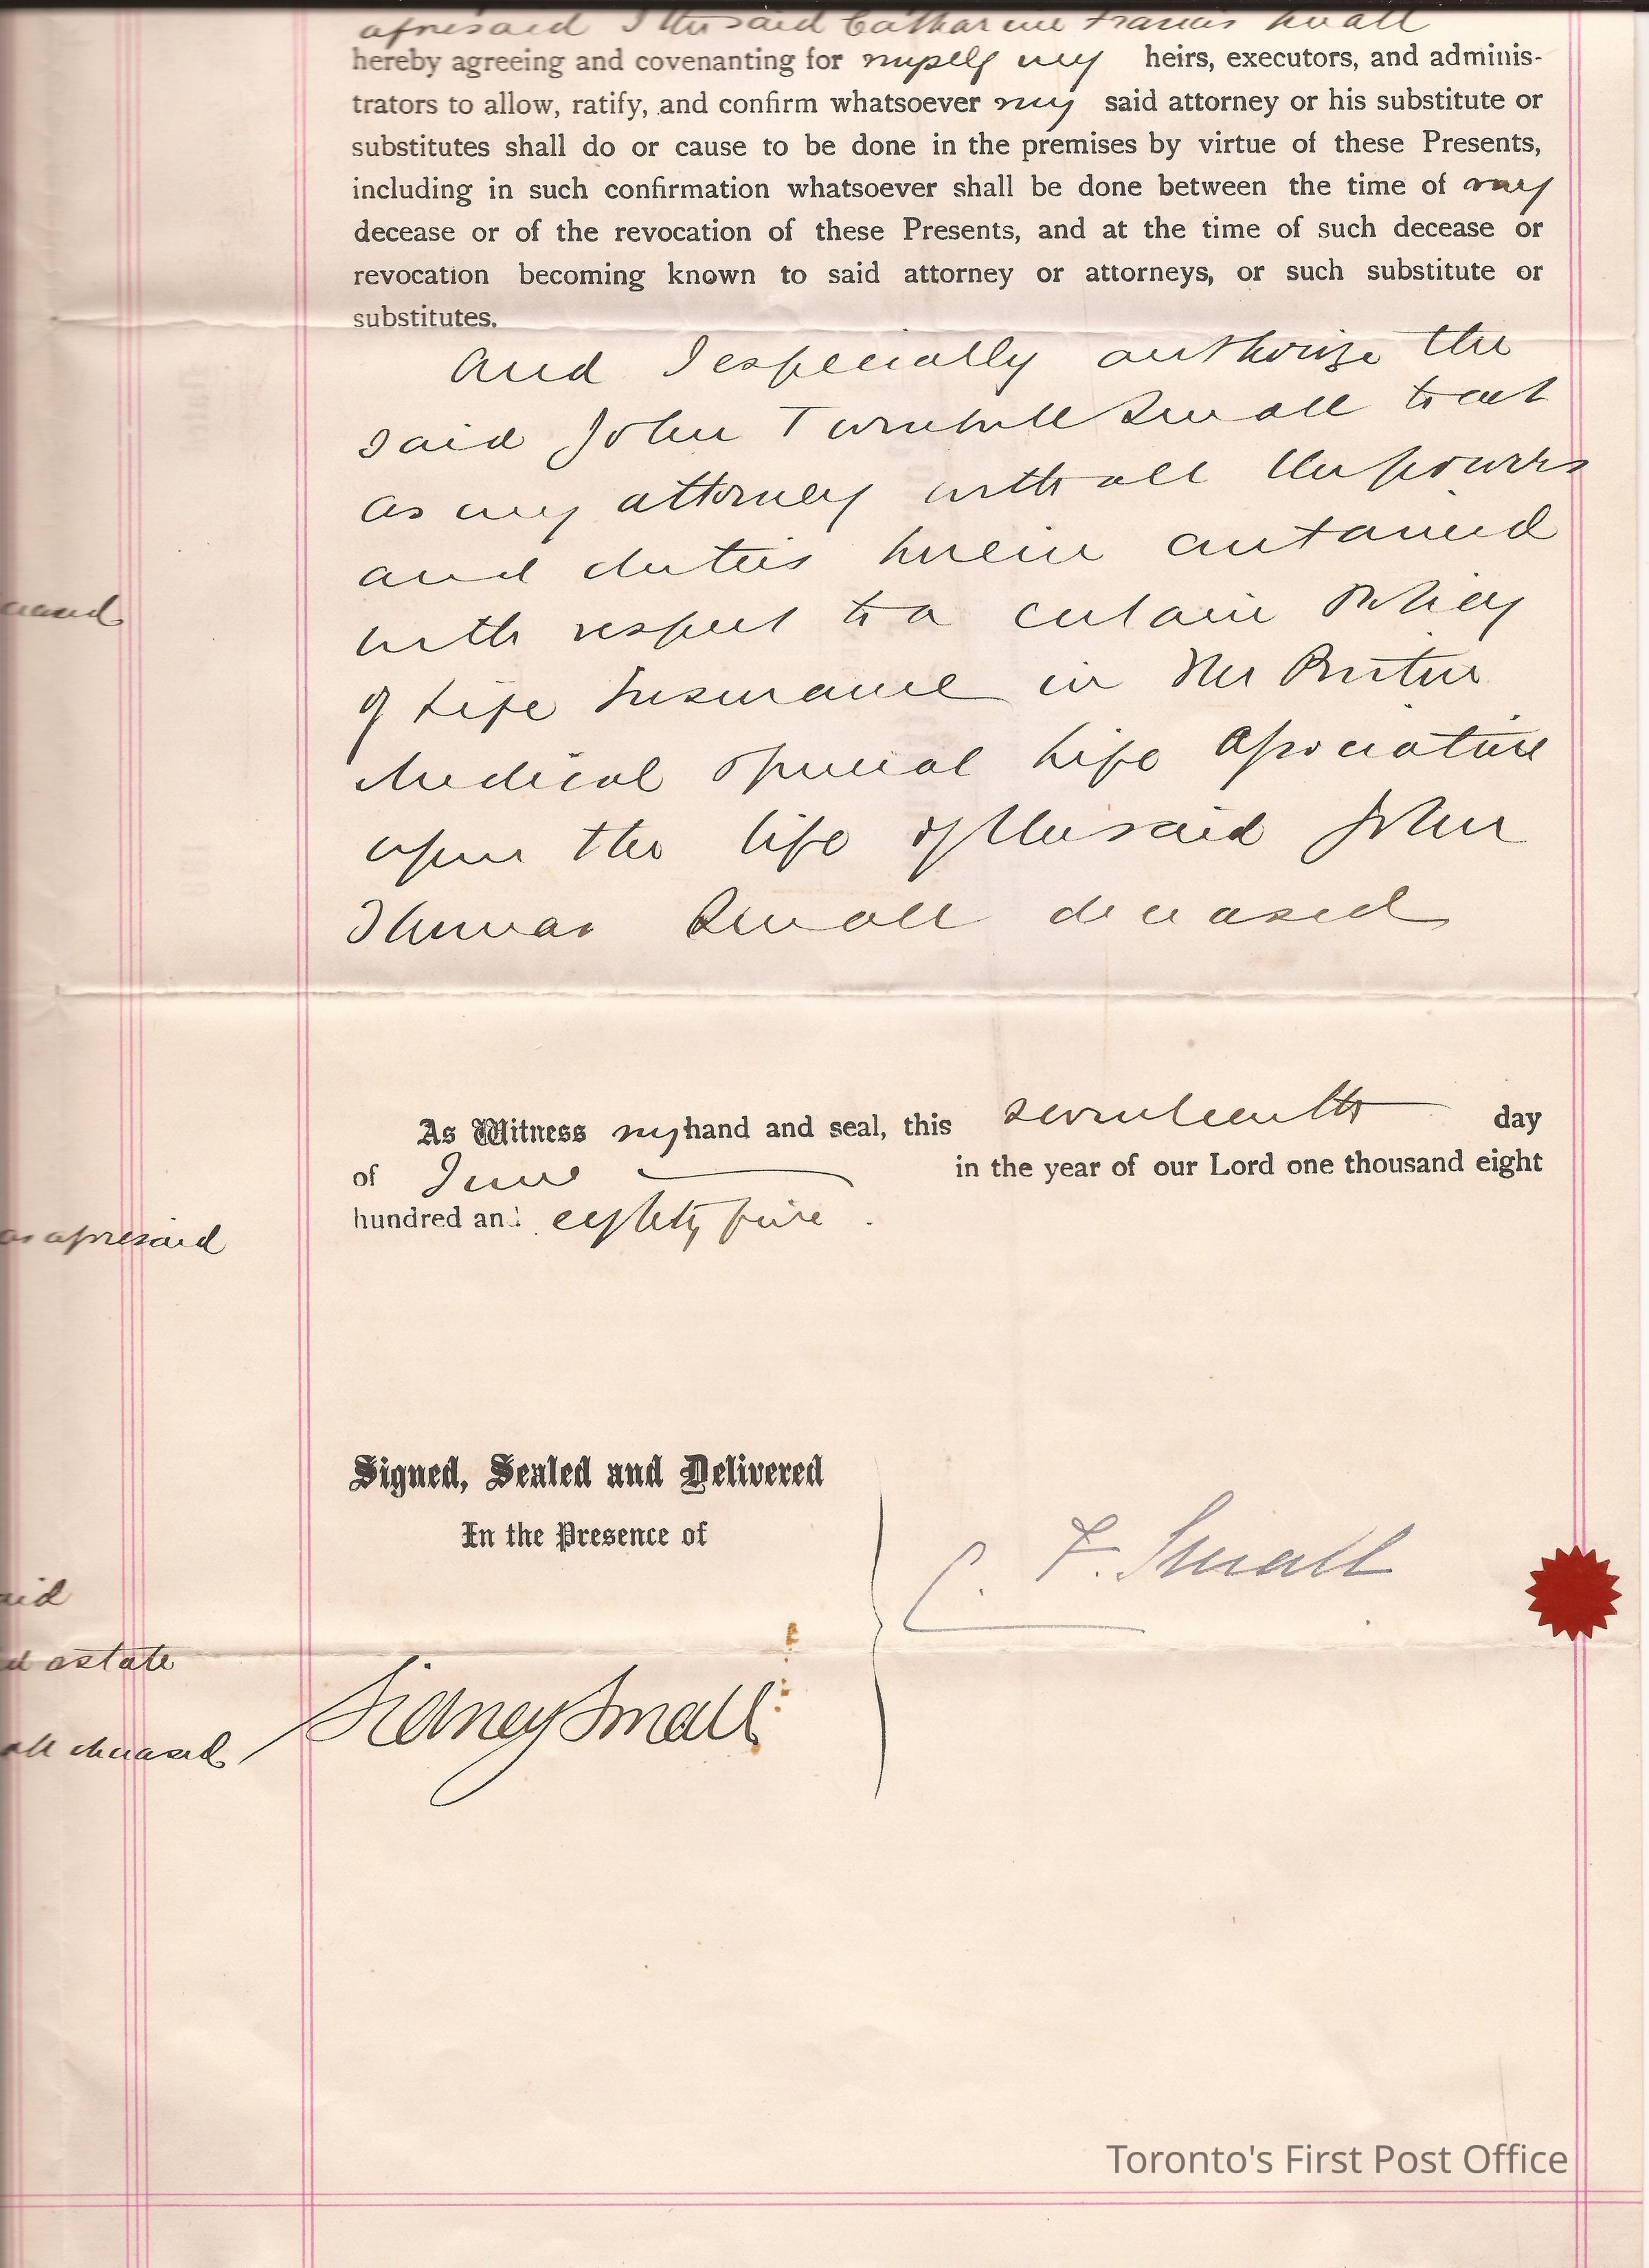 aforesaid I the said Catharine Francis Small
hereby agreeing and covenanting for myself my heirs, executors, and adminis-
trators to allow, ratify, and confirm whatsoever my said attorney or his substitute or
substitutes shall do or cause to be done in the premises by virtue of these Presents,
including in such confirmation whatsoever shall be done between the time of my
decease or of the revocation of these Presents, and at the time of such decease or
revocation becoming known to said attorney or attorneys, or such substitute or
substitutes.
And I especially authorize the
said John Turnbull Small to act
as my attorney with all the powers
and duties herein contained
with respect to a certain Policy
of Life Insurance in the Briton
Medical General Life Association
upon the life of the said John
Thomas Small deceased
As Witness my hand and seal, this seventeenth day
of June in the year of our Lord one thousand eight
hundred and eighty five.
as aforesaid
Signed, Sealed and Delivered
In the Presence of
C. F. Small
estate
Sidney Small
deceased
Toronto's First Post Office